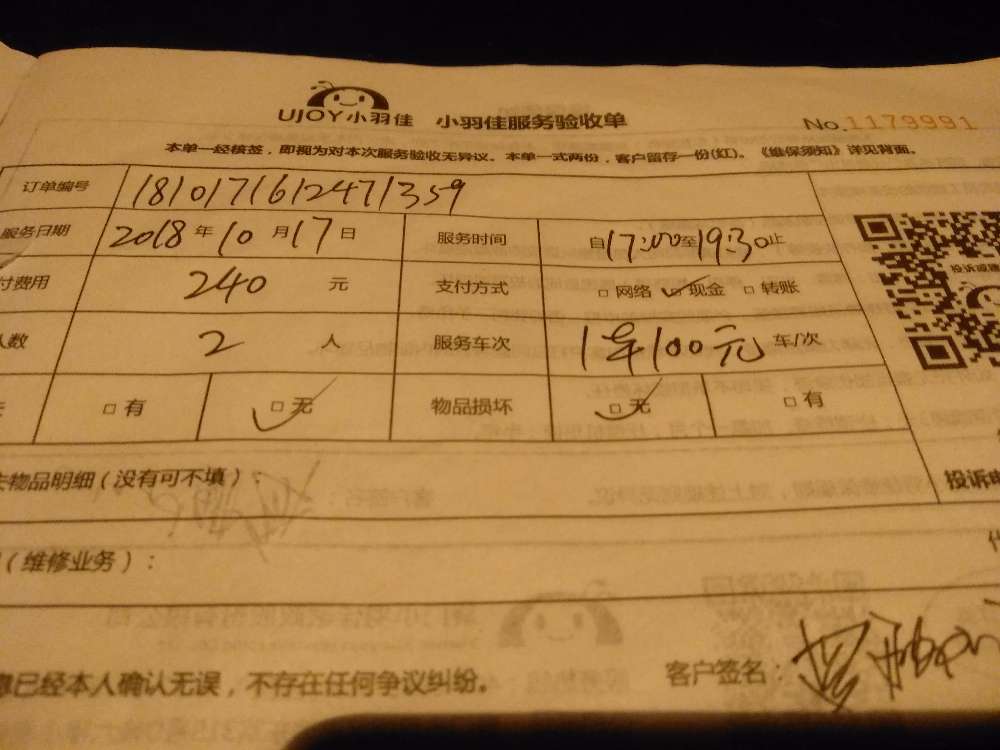 UJOY小羽佳 小羽佳服务验收单 No.1179991
本单一经核签，即视为对本次服务验收无异议。本单一式两份，客户留存一份(红)。《维保须知》详见背面。
订单编号 1810171612471359
服务日期 2018 年 10 月 17 日 服务时间 自17:00至19:30止
付费用 240 元 支付方式 □ 网络 □ 现金 □ 转账
人数 2 人 服务车次 1车100元 车/次
□ 有 □ 无 物品损坏 □ 无 □ 有
物品明细（没有可不填）： 投诉电
（维修业务）：
已经本人确认无误，不存在任何争议纠纷。 客户签名：